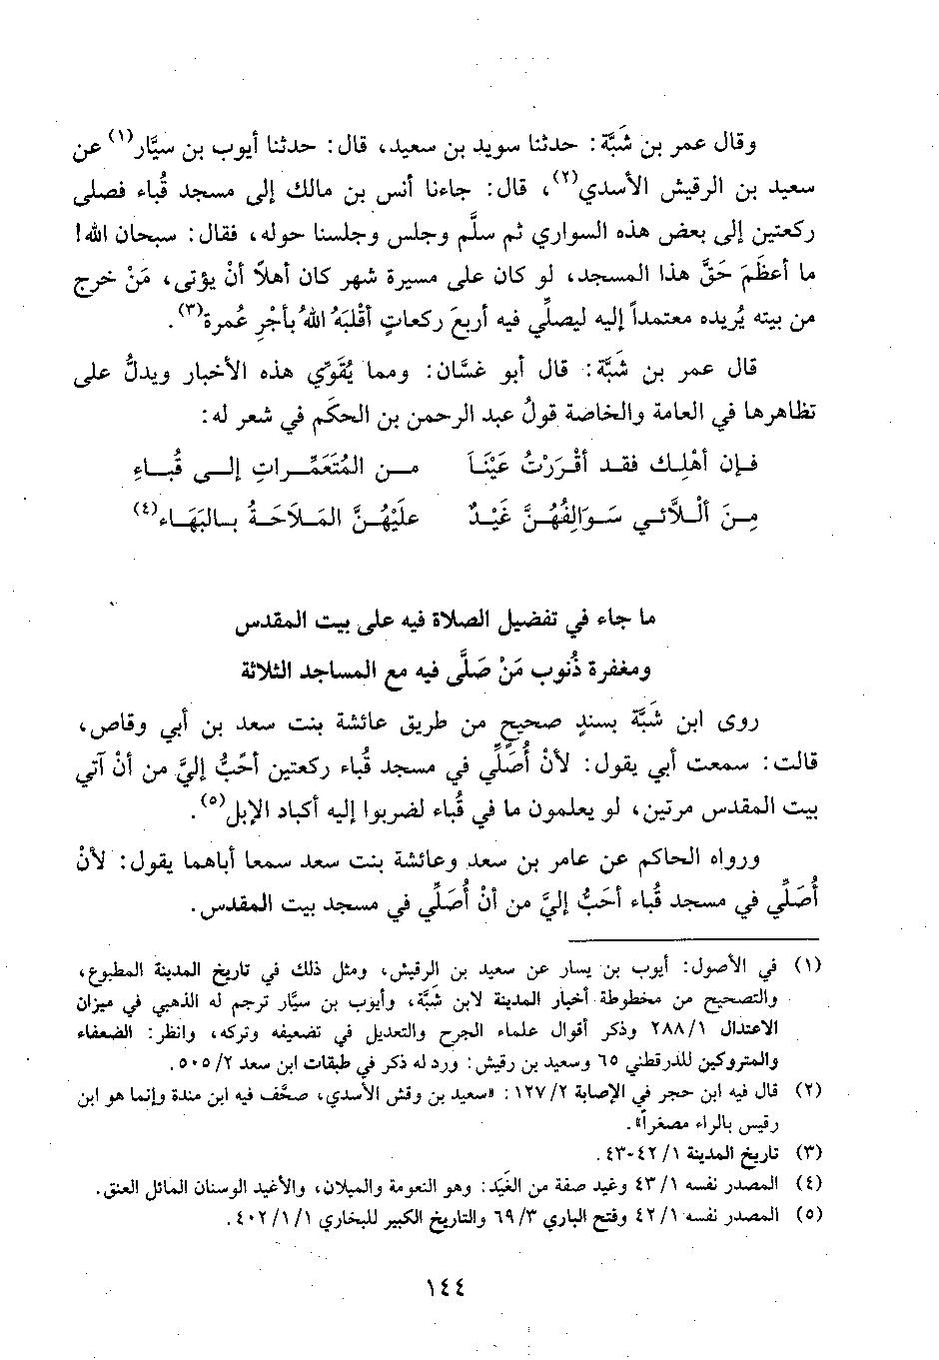 وقال عمر بن شَبَّة: حدثنا سويد بن سعيد، قال: حدثنا أيوب بن سيَّار(١) عن
سعيد بن الرقيش الأسدي(٢)، قال: جاءنا أنس بن مالك إلى مسجد قُباء فصلى
ركعتين إلى بعض هذه السواري ثم سلَّم وجلس وجلسنا حوله، فقال: سبحان الله!
ما أعظَمَ حَقَّ هذا المسجد، لو كان على مسيرة شهر كان أهلاً أنْ يؤتى، مَنْ خرج
من بيته يُريده معتمداً إليه ليصلِّي فيه أربعَ ركعاتٍ أقْلبَهُ اللهُ بأجْرِ عُمرة(٣).
قال عمر بن شَبَّة: قال أبو غسَّان: ومما يُقَوِّي هذه الأخبار ويدلُّ على
تظاهرها في العامة والخاصة قولُ عبد الرحمن بن الحكَم في شعر له:
فـإن أهْلِـك فقـد أقْـرَرْتُ عَيْنَـا مـن المُتَعَمِّـراتِ إلـى قُبـاءِ
مِـنَ أللَّائـي سَـوَالِفُهُـنَّ غَيْـدٌ علَيْهُـنَّ المَـلَاحَـةُ بـالبَهَـاء(٤)
ما جاء في تفضيل الصلاة فيه على بيت المقدس
ومغفرة ذُنوب مَنْ صَلَّى فيه مع المساجد الثلاثة
روى ابن شَبَّة بسندٍ صحيحٍ من طريق عائشة بنت سعد بن أبي وقاص،
قالت: سمعت أبي يقول: لأنْ أُصَلِّي في مسجد قُباء ركعتين أحَبُّ إليَّ من أنْ آتي
بيت المقدس مرتين، لو يعلمون ما في قُباء لضربوا إليه أكباد الإبل(٥).
ورواه الحاكم عن عامر بن سعد وعائشة بنت سعد سمعا أباهما يقول: لأنْ
أُصَلِّي في مسجد قُباء أحَبُّ إليَّ من أنْ أُصَلِّي في مسجد بيت المقدس.
(١) في الأصول: أيوب بن يسار عن سعيد بن الرقيش، ومثل ذلك في تاريخ المدينة المطبوع،
والتصحيح من مخطوطة أخبار المدينة لابن شَبَّة، وأيوب بن سيَّار ترجم له الذهبي في ميزان
الاعتدال ٢٨٨/١ وذكر أقوال علماء الجرح والتعديل في تضعيفه وتركه، وانظر: الضعفاء
والمتروكين للدرقطني ٦٥ وسعيد بن رقيش: ورد له ذكر في طبقات ابن سعد ٥٠٥/٢.
(٢) قال فيه ابن حجر في الإصابة ١٢٧/٢: «سعيد بن وقش الأسدي، صحَّف فيه ابن مندة وإنما هو ابن
رقيس بالراء مصغراً».
(٣) تاريخ المدينة ٤٢/١-٤٣.
(٤) المصدر نفسه ٤٣/١ وغيد صفة من الغَيَد: وهو النعومة والميلان، والأغيد الوسنان المائل العنق.
(٥) المصدر نفسه ٤٢/١ وفتح الباري ٦٩/٣ والتاريخ الكبير للبخاري ٤٠٢/١/١.
١٤٤